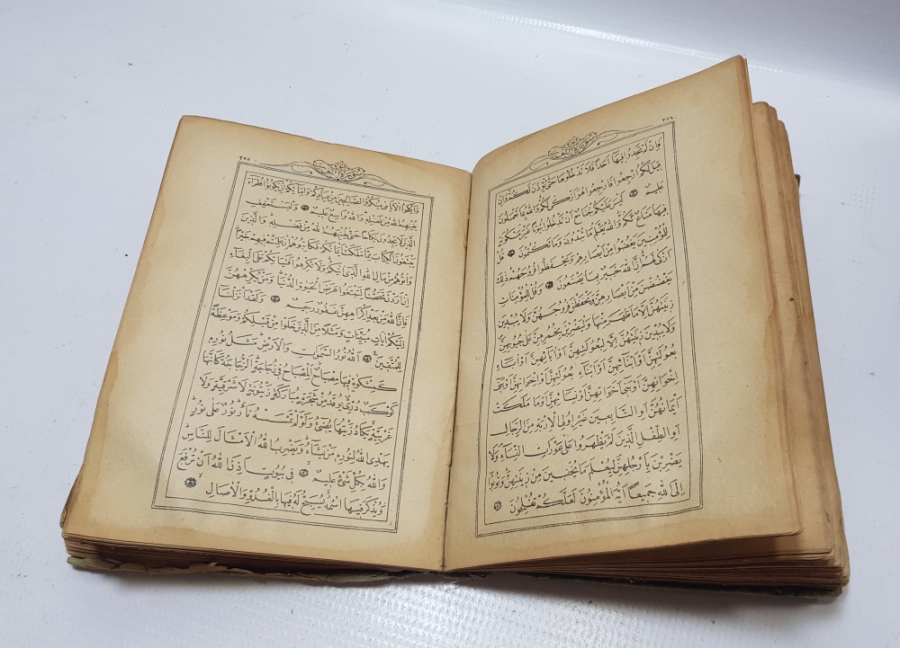 فَاِنْ لَمْ تَجِدُوا فِيهَا اَحَدًا فَلَا تَدْخُلُوهَا حَتّٰى يُؤْذَنَ لَكُمْ وَاِنْ
قِيلَ لَكُمُ ارْجِعُوا فَارْجِعُوا هُوَ اَزْكٰى لَكُمْ وَاللّٰهُ بِمَا تَعْمَلُونَ
عَلِيمٌ ٢٨ لَيْسَ عَلَيْكُمْ جُنَاحٌ اَنْ تَدْخُلُوا بُيُوتًا غَيْرَ مَسْكُونَةٍ
فِيهَا مَتَاعٌ لَكُمْ وَاللّٰهُ يَعْلَمُ مَا تُبْدُونَ وَمَا تَكْتُمُونَ ٢٩ قُلْ
لِلْمُؤْمِنِينَ يَغُضُّوا مِنْ اَبْصَارِهِمْ وَيَحْفَظُوا فُرُوجَهُمْ ذٰلِكَ
اَزْكٰى لَهُمْ اِنَّ اللّٰهَ خَبِيرٌ بِمَا يَصْنَعُونَ ٣٠ وَقُلْ لِلْمُؤْمِنَاتِ
يَغْضُضْنَ مِنْ اَبْصَارِهِنَّ وَيَحْفَظْنَ فُرُوجَهُنَّ وَلَا يُبْدِينَ
زِينَتَهُنَّ اِلَّا مَا ظَهَرَ مِنْهَا وَلْيَضْرِبْنَ بِخُمُرِهِنَّ عَلٰى جُيُوبِهِنَّ
وَلَا يُبْدِينَ زِينَتَهُنَّ اِلَّا لِبُعُولَتِهِنَّ اَوْ اٰبَائِهِنَّ اَوْ اٰبَاءِ
بُعُولَتِهِنَّ اَوْ اَبْنَائِهِنَّ اَوْ اَبْنَاءِ بُعُولَتِهِنَّ اَوْ اِخْوَانِهِنَّ اَوْ بَنِي
اِخْوَانِهِنَّ اَوْ بَنِي اَخَوَاتِهِنَّ اَوْ نِسَائِهِنَّ اَوْ مَا مَلَكَتْ
اَيْمَانُهُنَّ اَوِ التَّابِعِينَ غَيْرِ اُولِي الْاِرْبَةِ مِنَ الرِّجَالِ
اَوِ الطِّفْلِ الَّذِينَ لَمْ يَظْهَرُوا عَلٰى عَوْرَاتِ النِّسَاءِ وَلَا
يَضْرِبْنَ بِاَرْجُلِهِنَّ لِيُعْلَمَ مَا يُخْفِينَ مِنْ زِينَتِهِنَّ وَتُوبُوا
اِلَى اللّٰهِ جَمِيعًا اَيُّهَ الْمُؤْمِنُونَ لَعَلَّكُمْ تُفْلِحُونَ ٣١
وَاَنْكِحُوا الْاَيَامٰى مِنْكُمْ وَالصَّالِحِينَ مِنْ عِبَادِكُمْ وَاِمَائِكُمْ اِنْ يَكُونُوا فُقَرَاءَ
يُغْنِهِمُ اللّٰهُ مِنْ فَضْلِهِ وَاللّٰهُ وَاسِعٌ عَلِيمٌ ٣٢ وَلْيَسْتَعْفِفِ
الَّذِينَ لَا يَجِدُونَ نِكَاحًا حَتّٰى يُغْنِيَهُمُ اللّٰهُ مِنْ فَضْلِهِ وَالَّذِينَ
يَبْتَغُونَ الْكِتَابَ مِمَّا مَلَكَتْ اَيْمَانُكُمْ فَكَاتِبُوهُمْ اِنْ عَلِمْتُمْ فِيهِمْ خَيْرًا
وَاٰتُوهُمْ مِنْ مَالِ اللّٰهِ الَّذِي اٰتٰيكُمْ وَلَا تُكْرِهُوا فَتَيَاتِكُمْ عَلَى الْبِغَاءِ
اِنْ اَرَدْنَ تَحَصُّنًا لِتَبْتَغُوا عَرَضَ الْحَيٰوةِ الدُّنْيَا وَمَنْ يُكْرِهْهُنَّ
فَاِنَّ اللّٰهَ مِنْ بَعْدِ اِكْرَاهِهِنَّ غَفُورٌ رَحِيمٌ ٣٣ وَلَقَدْ اَنْزَلْنَا
اِلَيْكُمْ اٰيَاتٍ مُبَيِّنَاتٍ وَمَثَلًا مِنَ الَّذِينَ خَلَوْا مِنْ قَبْلِكُمْ وَمَوْعِظَةً
لِلْمُتَّقِينَ ٣٤ اَللّٰهُ نُورُ السَّمٰوَاتِ وَالْاَرْضِ مَثَلُ نُورِهِ
كَمِشْكٰوةٍ فِيهَا مِصْبَاحٌ اَلْمِصْبَاحُ فِي زُجَاجَةٍ اَلزُّجَاجَةُ كَاَنَّهَا
كَوْكَبٌ دُرِّيٌّ يُوقَدُ مِنْ شَجَرَةٍ مُبَارَكَةٍ زَيْتُونَةٍ لَا شَرْقِيَّةٍ وَلَا
غَرْبِيَّةٍ يَكَادُ زَيْتُهَا يُضِيءُ وَلَوْ لَمْ تَمْسَسْهُ نَارٌ نُورٌ عَلٰى نُورٍ
يَهْدِي اللّٰهُ لِنُورِهِ مَنْ يَشَاءُ وَيَضْرِبُ اللّٰهُ الْاَمْثَالَ لِلنَّاسِ
وَاللّٰهُ بِكُلِّ شَيْءٍ عَلِيمٌ ٣٥ فِي بُيُوتٍ اَذِنَ اللّٰهُ اَنْ تُرْفَعَ
وَيُذْكَرَ فِيهَا اسْمُهُ يُسَبِّحُ لَهُ فِيهَا بِالْغُدُوِّ وَالْاٰصَالِ ٣٦